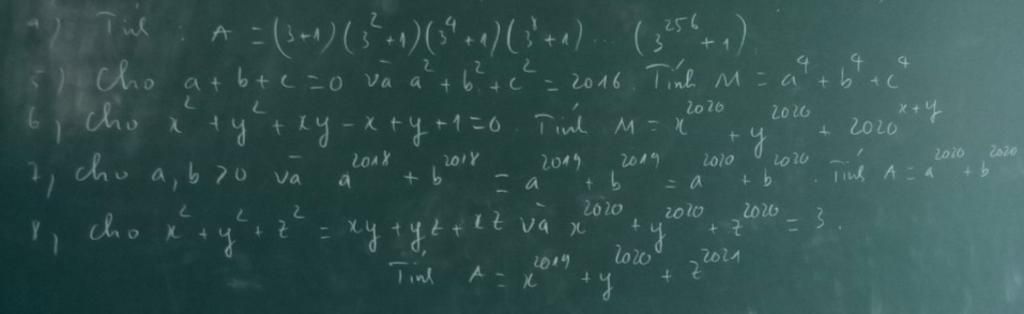 4) Tính : A = (3+1)(3²+1)(3⁴+1)(3⁸+1)...(3²⁵⁶+1)
5) Cho a+b+c=0 và a²+b²+c²=2016. Tính M=a⁴+b⁴+c⁴
6, Cho x²+y²+xy-x+y+1=0 Tính M=x²⁰²⁰+y²⁰²⁰+2020ˣ⁺ʸ
7, Cho a,b>0 và a²⁰¹⁸+b²⁰¹⁸=a²⁰¹⁹+b²⁰¹⁹=a²⁰²⁰+b²⁰²⁰. Tính A=a²⁰²⁰+b²⁰²⁰
8, Cho x²+y²+z²=xy+yz+xz và x²⁰²⁰+y²⁰²⁰+z²⁰²⁰=3.
Tính A=x²⁰¹⁹+y²⁰²⁰+z²⁰²¹